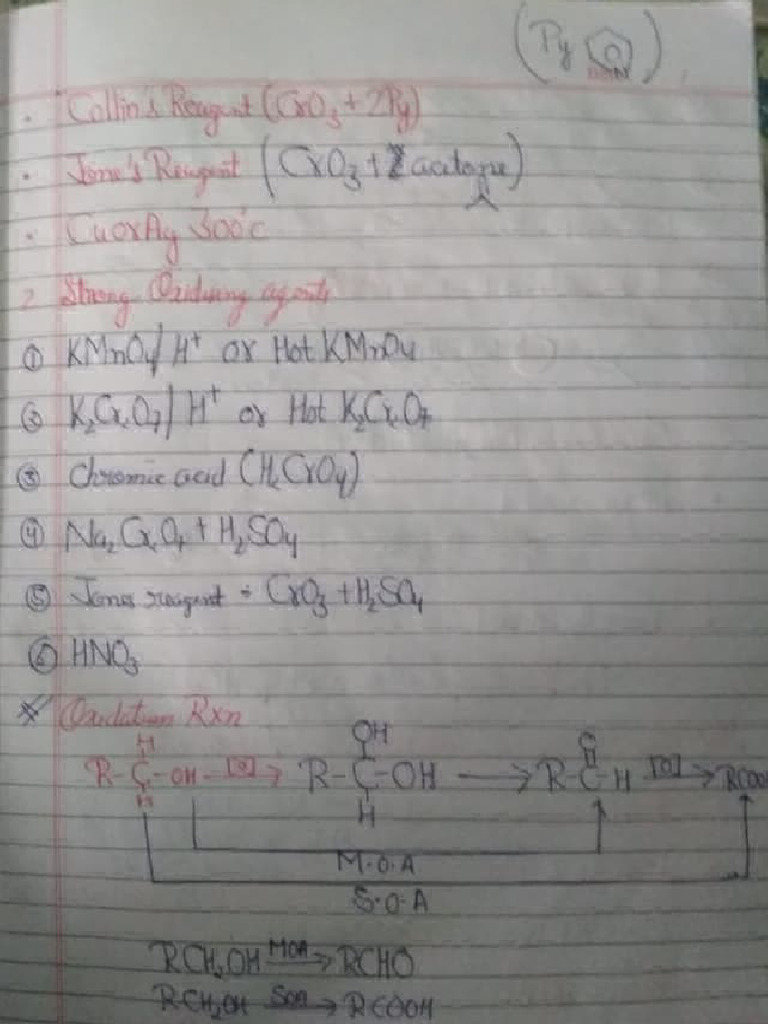 (Py N)
· Collin's Reagent (CrO3 + 2Py)
· Jone's Reagent (CrO3 + acetone)
· Cu or Ag 300°c
2 Strong Oxidising agents
① KMnO4/H+ or Hot KMnO4
② K2Cr2O7/H+ or Hot K2Cr2O7
③ Chromic acid (H2CrO4)
④ Na2Cr2O7 + H2SO4
⑤ Jones reagent - CrO3 + H2SO4
⑥ HNO3
* Oxidation Rxn
H OH O
R-C-OH [O]→ R-C-OH → R-C-H [O]→ RCOOH
H H
M.O.A
S.O.A
RCH2OH MOA→ RCHO
RCH2OH SOA→ RCOOH